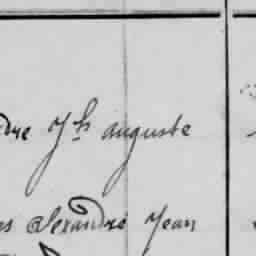 dre Jh auguste
es alexandre Jean